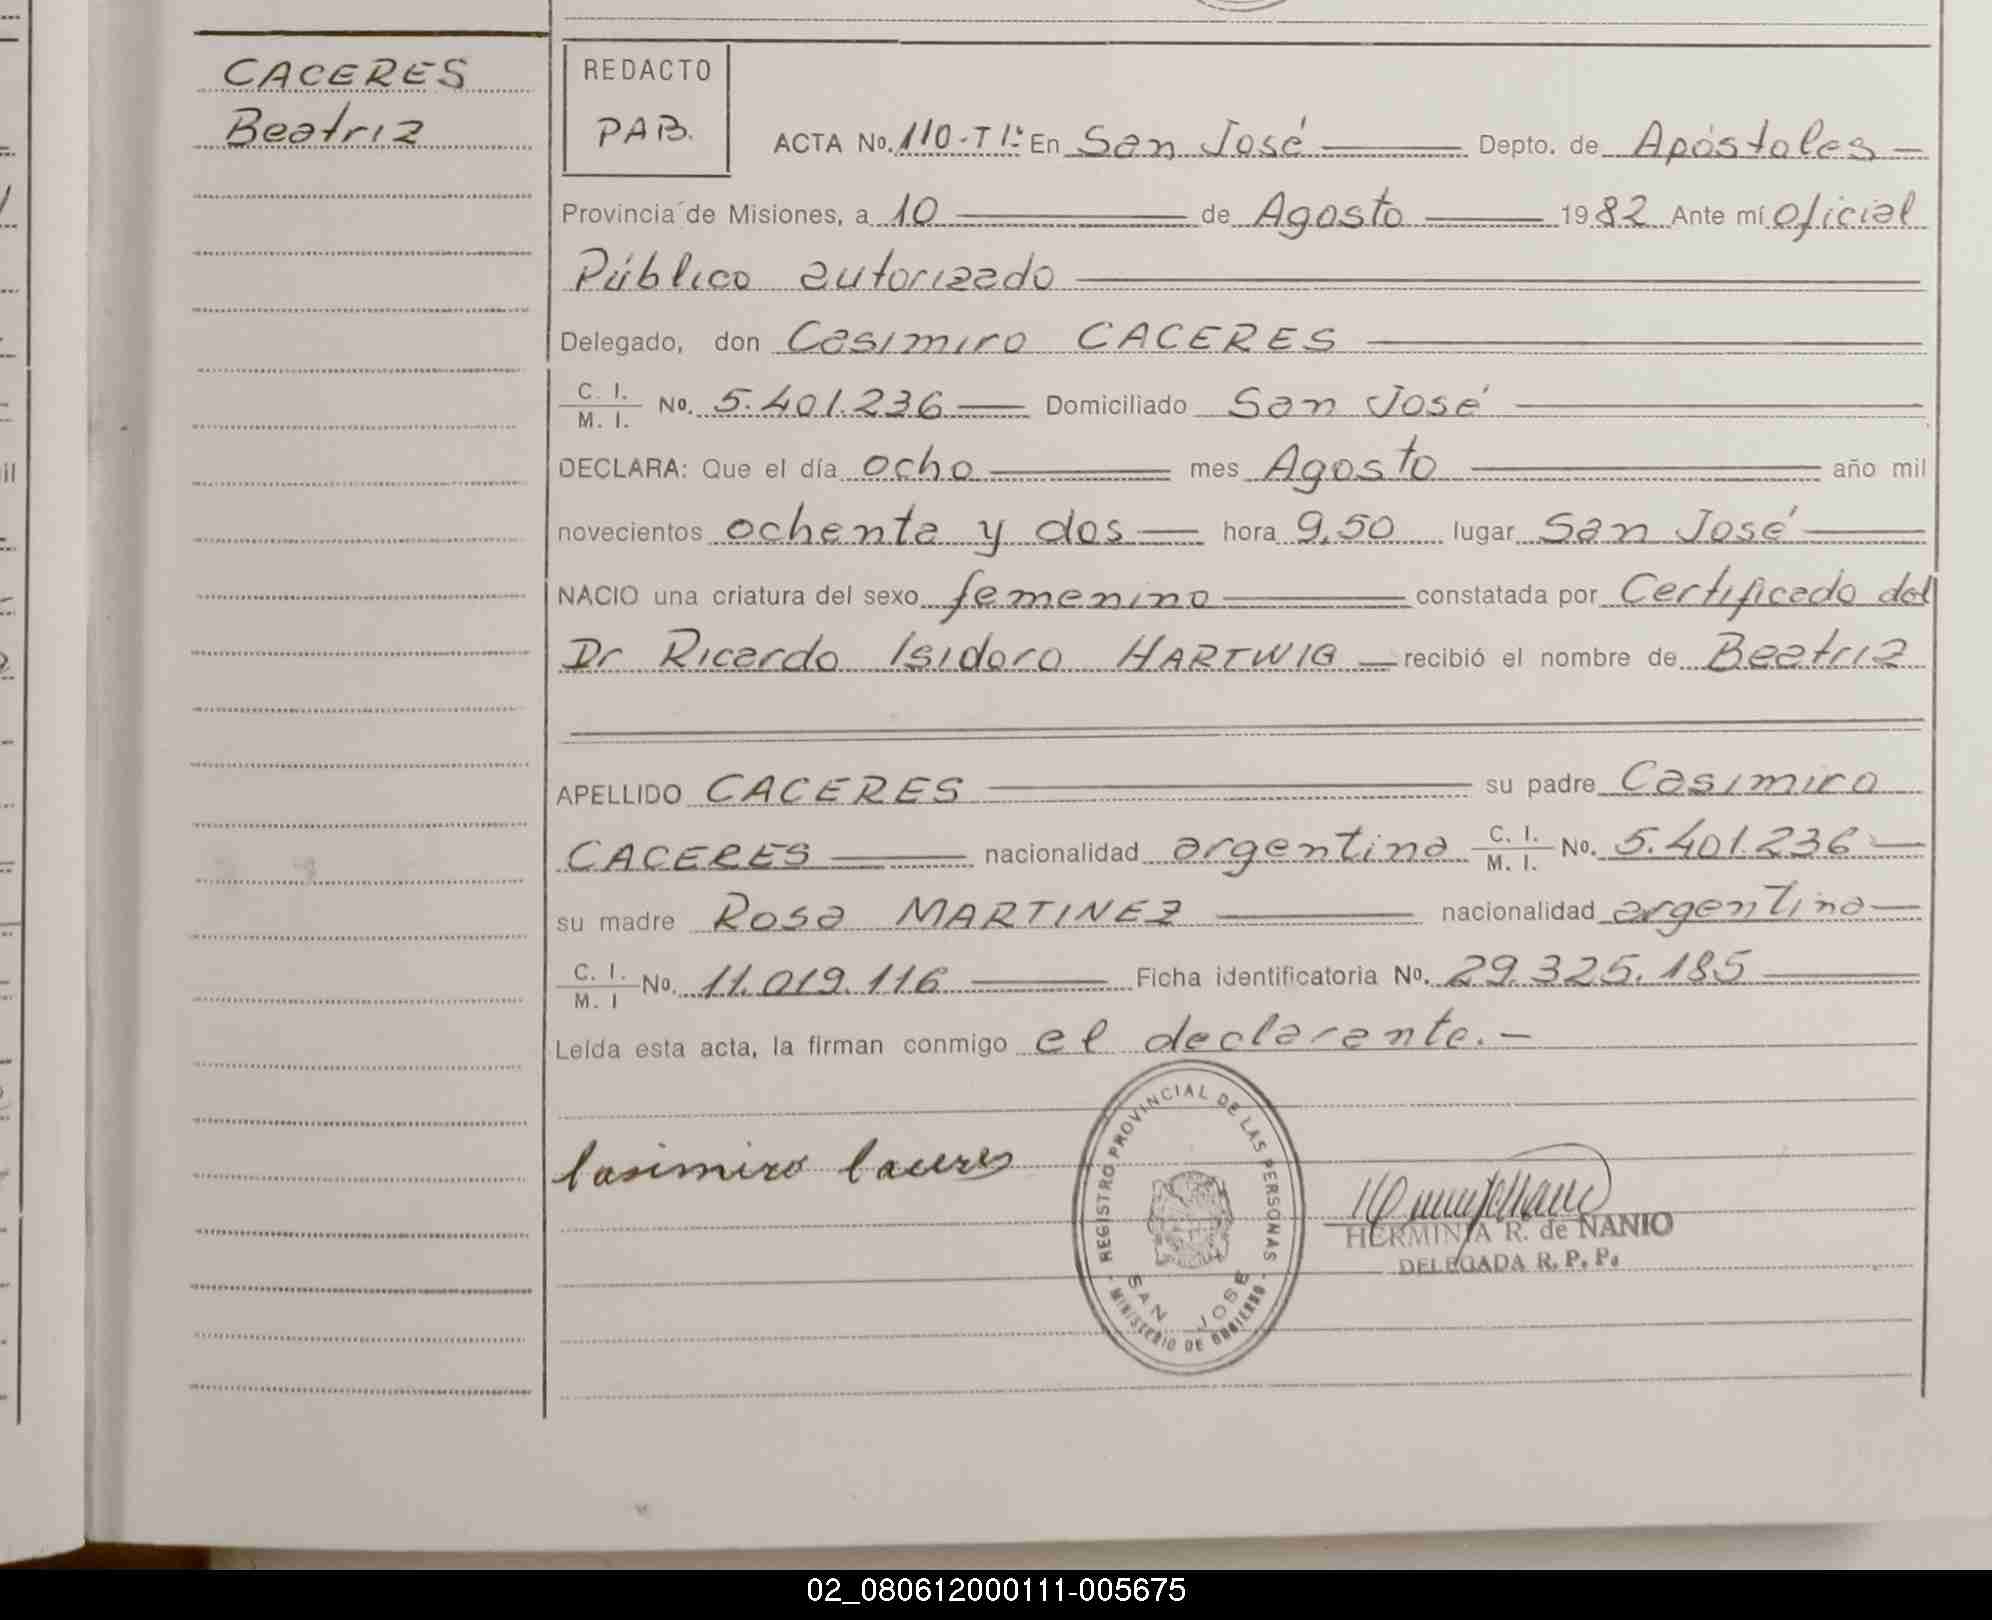 CACERES
Beatriz
REDACTO
PAB.
ACTA No. 110-T1º En San José Depto. de Apóstoles
Provincia de Misiones, a 10 de Agosto 1982 Ante mí oficial
Público autorizado
Delegado, don Casimiro CACERES
C. I.
M. I. No. 5.401.236 Domiciliado San José
DECLARA: Que el día ocho mes Agosto año mil
novecientos ochenta y dos hora 9,50 lugar San José
NACIO una criatura del sexo femenino constatada por Certificado del
Dr Ricardo Isidoro HARTWIG recibió el nombre de Beatriz
APELLIDO CACERES su padre Casimiro
CACERES nacionalidad argentina C. I.
M. I. No. 5.401.236
su madre Rosa MARTINEZ nacionalidad argentina
C. I.
M. I No. 11.019.116 Ficha identificatoria No. 29.325.185
Leída esta acta, la firman conmigo el declarante.-
Casimiro Caceres
REGISTRO PROVINCIAL DE LAS PERSONAS
SAN JOSE
MINISTERIO DE GOBIERNO
HERMINIA R. de NANIO
DELEGADA R. P. P.
02_080612000111-005675